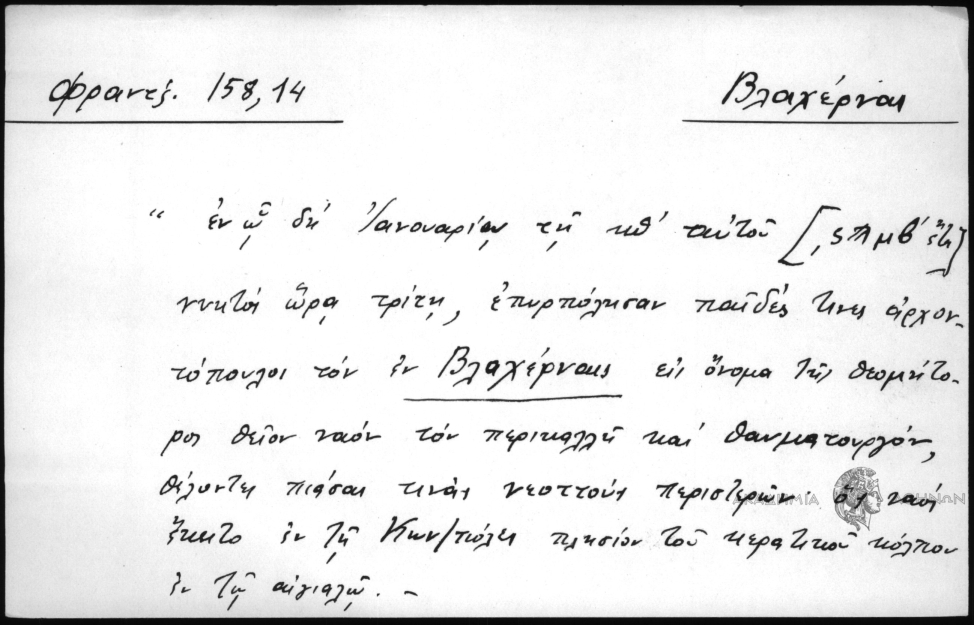 Φραντζ. 158,14
Βλαχέρναι
“ ἐν ᾧ δὴ Ἰανουαρίῳ τῇ κθ' αὐτοῦ [͵ςπμβ' ἔτει]
νυκτὸς ὥρᾳ τρίτῃ, ἐπυρπόλησαν παῖδές τινες ἀρχον-
τόπουλοι τὸν ἐν Βλαχέρναις εἰς ὄνομα τῆς θεομήτο-
ρος θεῖον ναὸν τὸν περικαλλῆ καὶ θαυματουργόν,
θέλοντες πιάσαι τινὰς νεοττοὺς περιστερῶν· ὃς ναὸς
ἔκειτο ἐν τῇ Κων/πόλει πλησίον τοῦ κερατικοῦ κόλπου
ἐν τῷ αἰγιαλῷ. –
ΑΚΑΔΗΜΙΑ ΑΘΗΝΩΝ